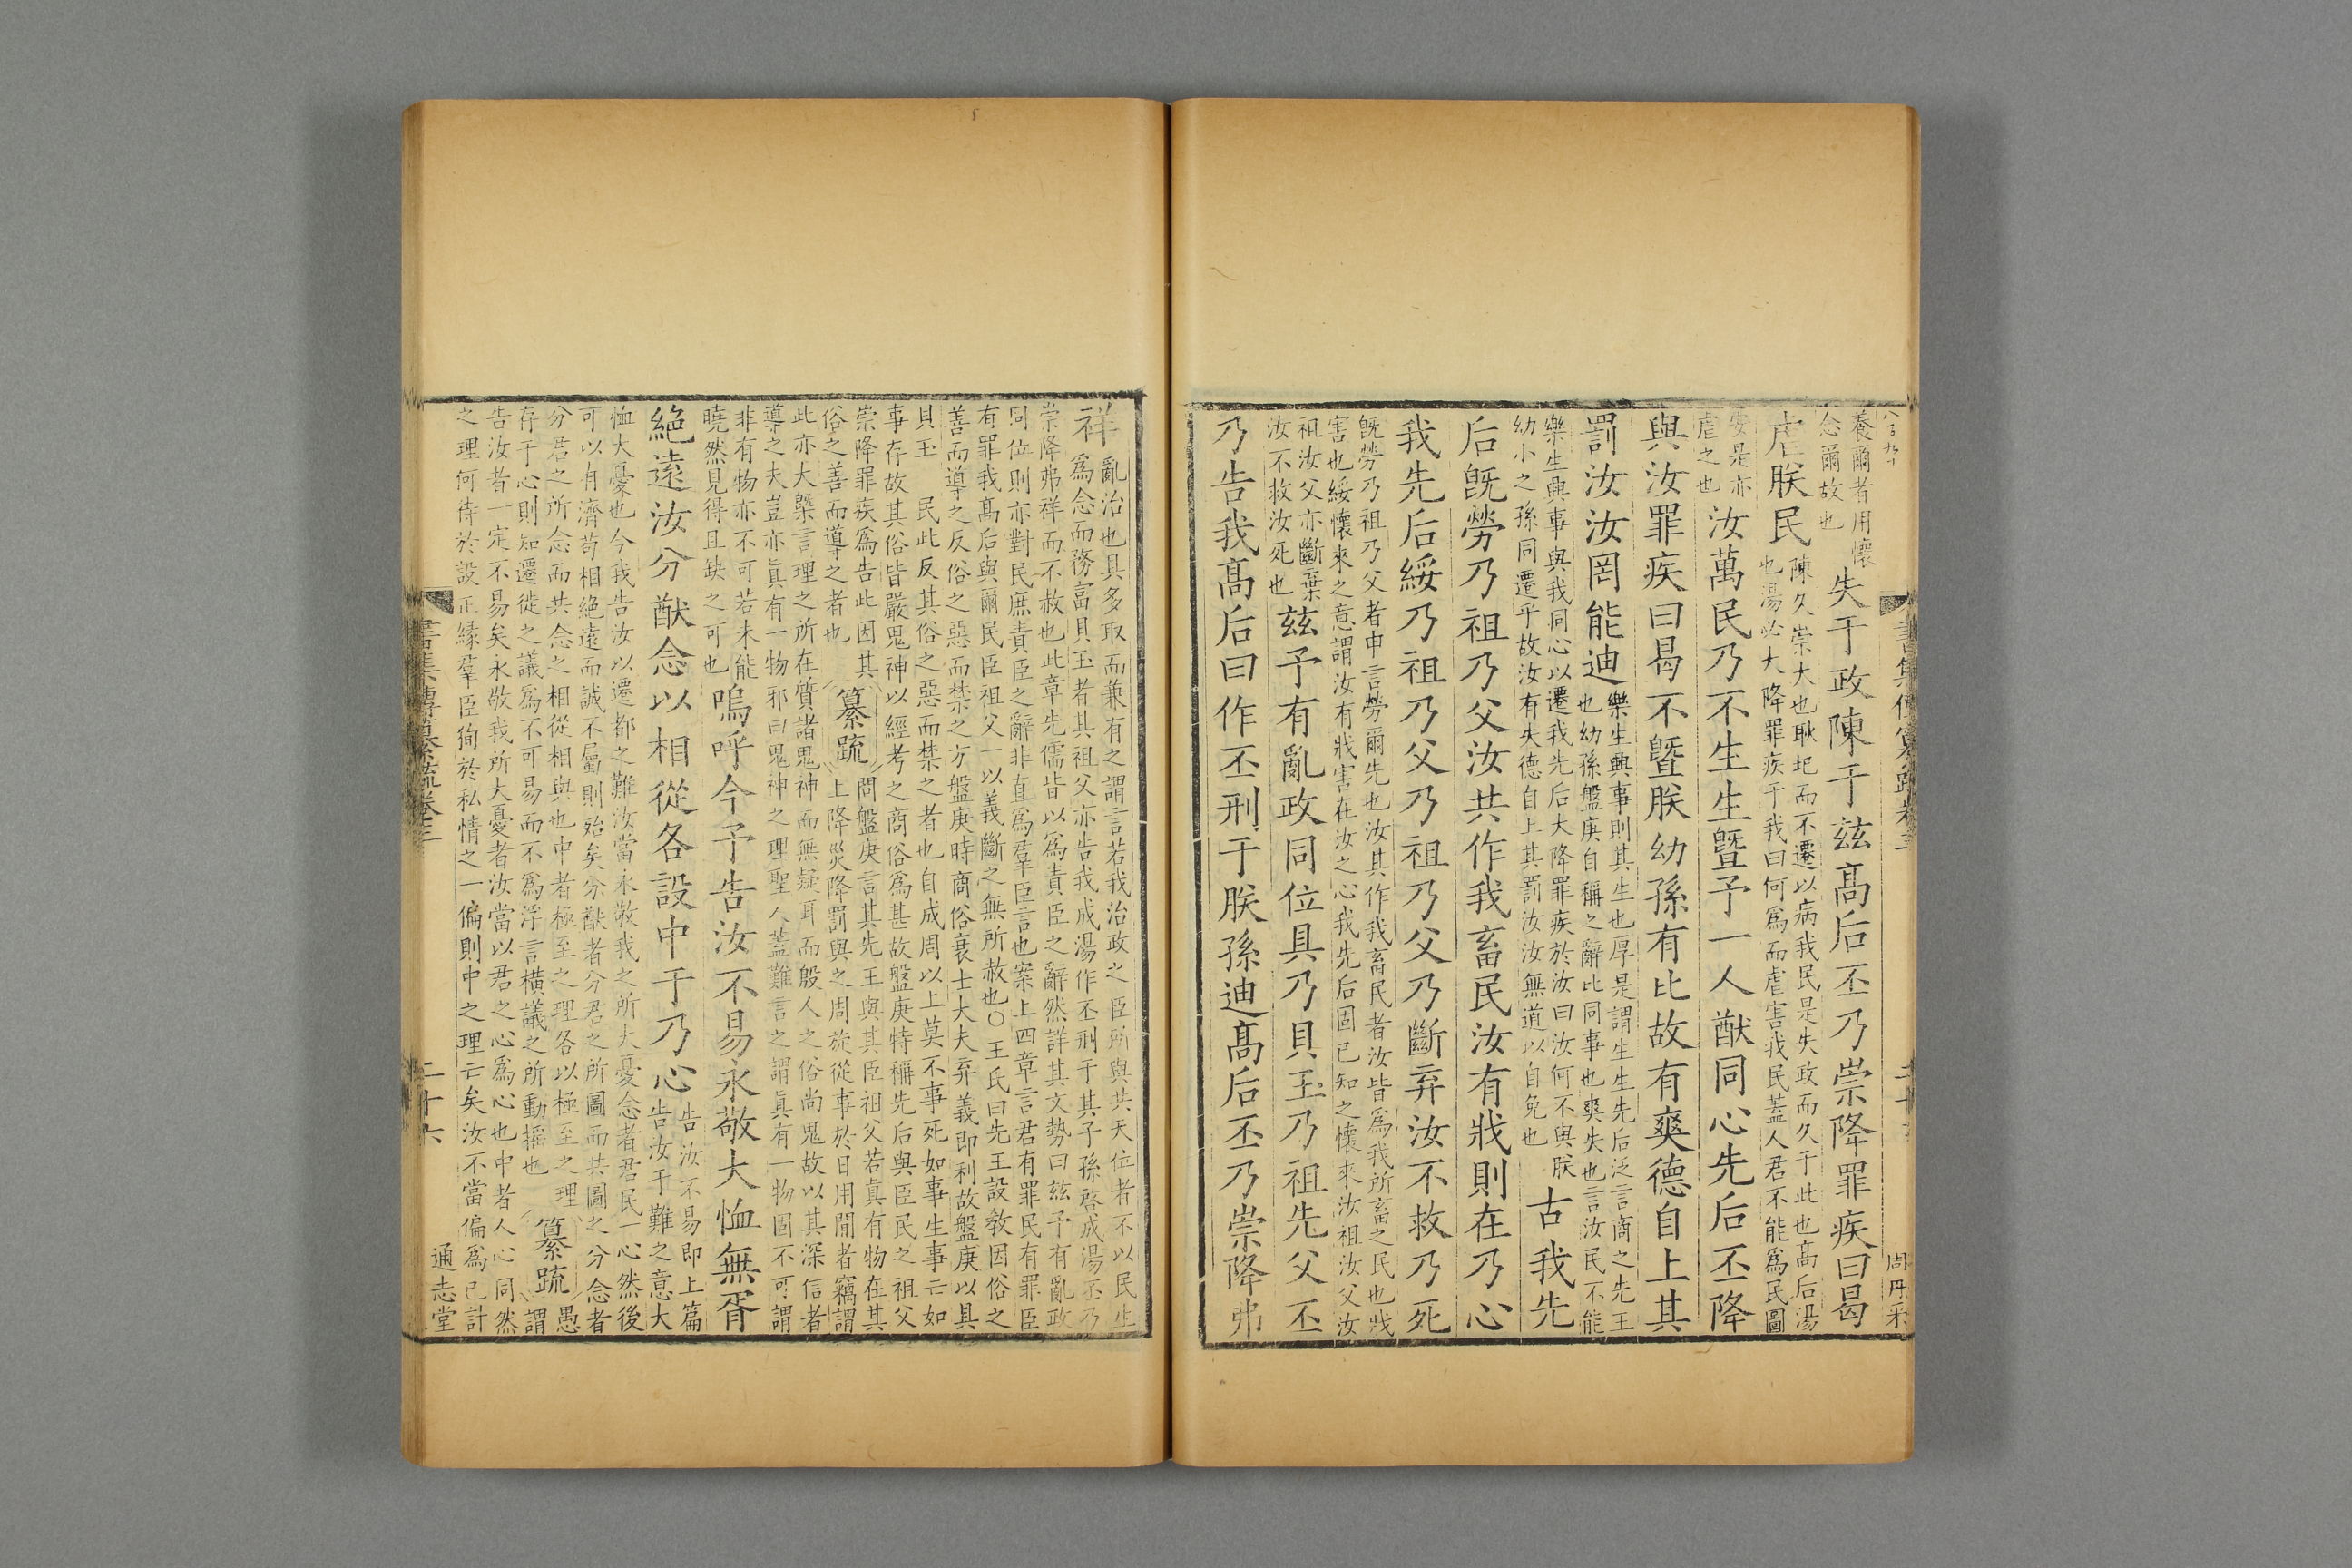 八百九十
書集傳纂疏卷三
周丹采
養爾者用懷
念爾故也
失于政陳于茲高后丕乃崇降罪疾曰曷
虐朕民
陳久崇大也耿圮而不遷以病我民是失政而久于此也高后湯
也湯必大降罪疾于我曰何爲而虐害我民蓋人君不能爲民圖
安是亦
虐之也
汝萬民乃不生生曁予一人猷同心先后丕降
與汝罪疾曰曷不曁朕幼孫有比故有爽德自上其
罰汝汝罔能迪
樂生興事則其生也厚是謂生生先后泛言商之先王
也幼孫盤庚自稱之辭比同事也爽失也言汝民不能
樂生興事與我同心以遷我先后大降罪疾於汝曰汝何不與朕
幼小之孫同遷乎故汝有失德自上其罰汝汝無道以自免也
古我先
后旣勞乃祖乃父汝共作我畜民汝有戕則在乃心
我先后綏乃祖乃父乃祖乃父乃斷弃汝不救乃死
旣勞乃祖乃父者申言勞爾先也汝其作我畜民者汝皆爲我所畜之民也戕
害也綏懷來之意謂汝有戕害在汝之心我先后固已知之懷來汝祖汝父汝
祖汝父亦斷棄
汝不救汝死也
茲予有亂政同位具乃貝玉乃祖先父丕
乃告我高后曰作丕刑于朕孫迪高后丕乃崇降弗
祥
亂治也具多取而兼有之謂言若我治政之臣所與共天位者不以民生
爲念而務富貝玉者其祖父亦告我成湯作丕刑于其子孫啓成湯丕乃
崇降弗祥而不赦也此章先儒皆以爲責臣之辭然詳其文勢曰茲予有亂政
同位則亦對民庶責臣之辭非直爲羣臣言也案上四章言君有罪民有罪臣
有罪我高后與爾民臣祖父一以義斷之無所赦也○王氏曰先王設敎因俗之
善而導之反俗之惡而禁之方盤庚時商俗衰士大夫弃義即利故盤庚以具
貝玉 民此反其俗之惡而禁之者也自成周以上莫不事死如事生事亡如
事存故其俗皆嚴鬼神以經考之商俗爲甚故盤庚特稱先后與臣民之祖父
崇降罪疾爲告此因其
俗之善而導之者也
纂疏
問盤庚言其先王與其臣祖父若眞有物在其
上降災降罰與之周旋從事於日用閒者竊謂
此亦大槩言理之所在質諸鬼神而無疑耳而殷人之俗尚鬼故以其深信者
導之夫豈亦眞有一物邪曰鬼神之理聖人蓋難言之謂眞有一物固不可謂
非有物亦不可若未能
曉然見得且缺之可也
嗚呼今予告汝不易永敬大恤無胥
絶遠汝分猷念以相從各設中于乃心
告汝不易即上篇
告汝于難之意大
恤大憂也今我告汝以遷都之難汝當永敬我之所大憂念者君民一心然後
可以有濟苟相絶遠而誠不屬則殆矣分猷者分君之所圖而共圖之分念者
分君之所念而共念之相從相與也中者極至之理各以極至之理
存于心則知遷徙之議爲不可易而不爲浮言橫議之所動搖也
纂疏
愚
謂
告汝者一定不易矣永敬我所大憂者汝當以君之心爲心也中者人心同然
之理何待於設正緣羣臣徇於私情之一偏則中之理亡矣汝不當偏爲己計
書集傳纂疏卷三
二十六
通志堂